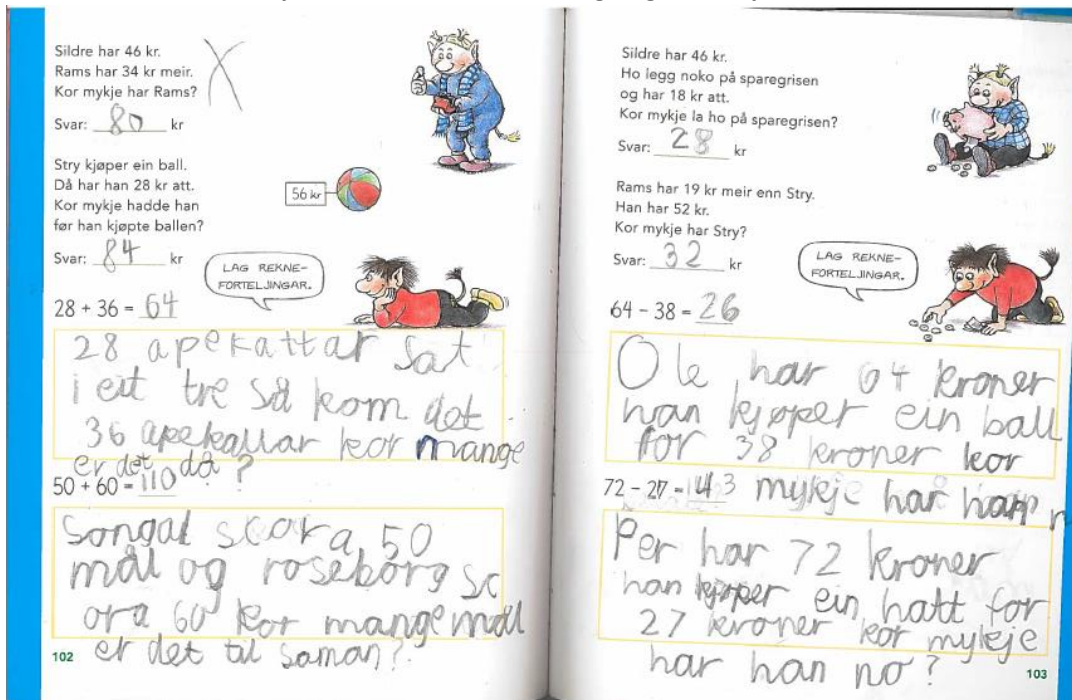 Sildre har 46 kr.
Rams har 34 kr meir.
Kor mykje har Rams?
Svar: 80 kr
Stry kjøper ein ball.
Då har han 28 kr att.
Kor mykje hadde han
før han kjøpte ballen?
56 kr
Svar: 84 kr
LAG REKNE-
FORTELJINGAR.
28 + 36 = 64
28 apekattar sat
i eit tre så kom det
36 apekattar kor mange
er det då?
50 + 60 = 110
Songal skora 50
mål og roseborg sc
ora 60 kor mange mål
er det til saman?
102
Sildre har 46 kr.
Ho legg noko på sparegrisen
og har 18 kr att.
Kor mykje la ho på sparegrisen?
Svar: 28 kr
Rams har 19 kr meir enn Stry.
Han har 52 kr.
Kor mykje har Stry?
Svar: 32 kr
LAG REKNE-
FORTELJINGAR.
64 – 38 = 26
Ole har 64 kroner
han kjøper ein ball
for 38 kroner kor
mykje har han
72 – 27 = 43
Per har 72 kroner
han kjøper ein hatt for
27 kroner kor mykje
har han no?
103